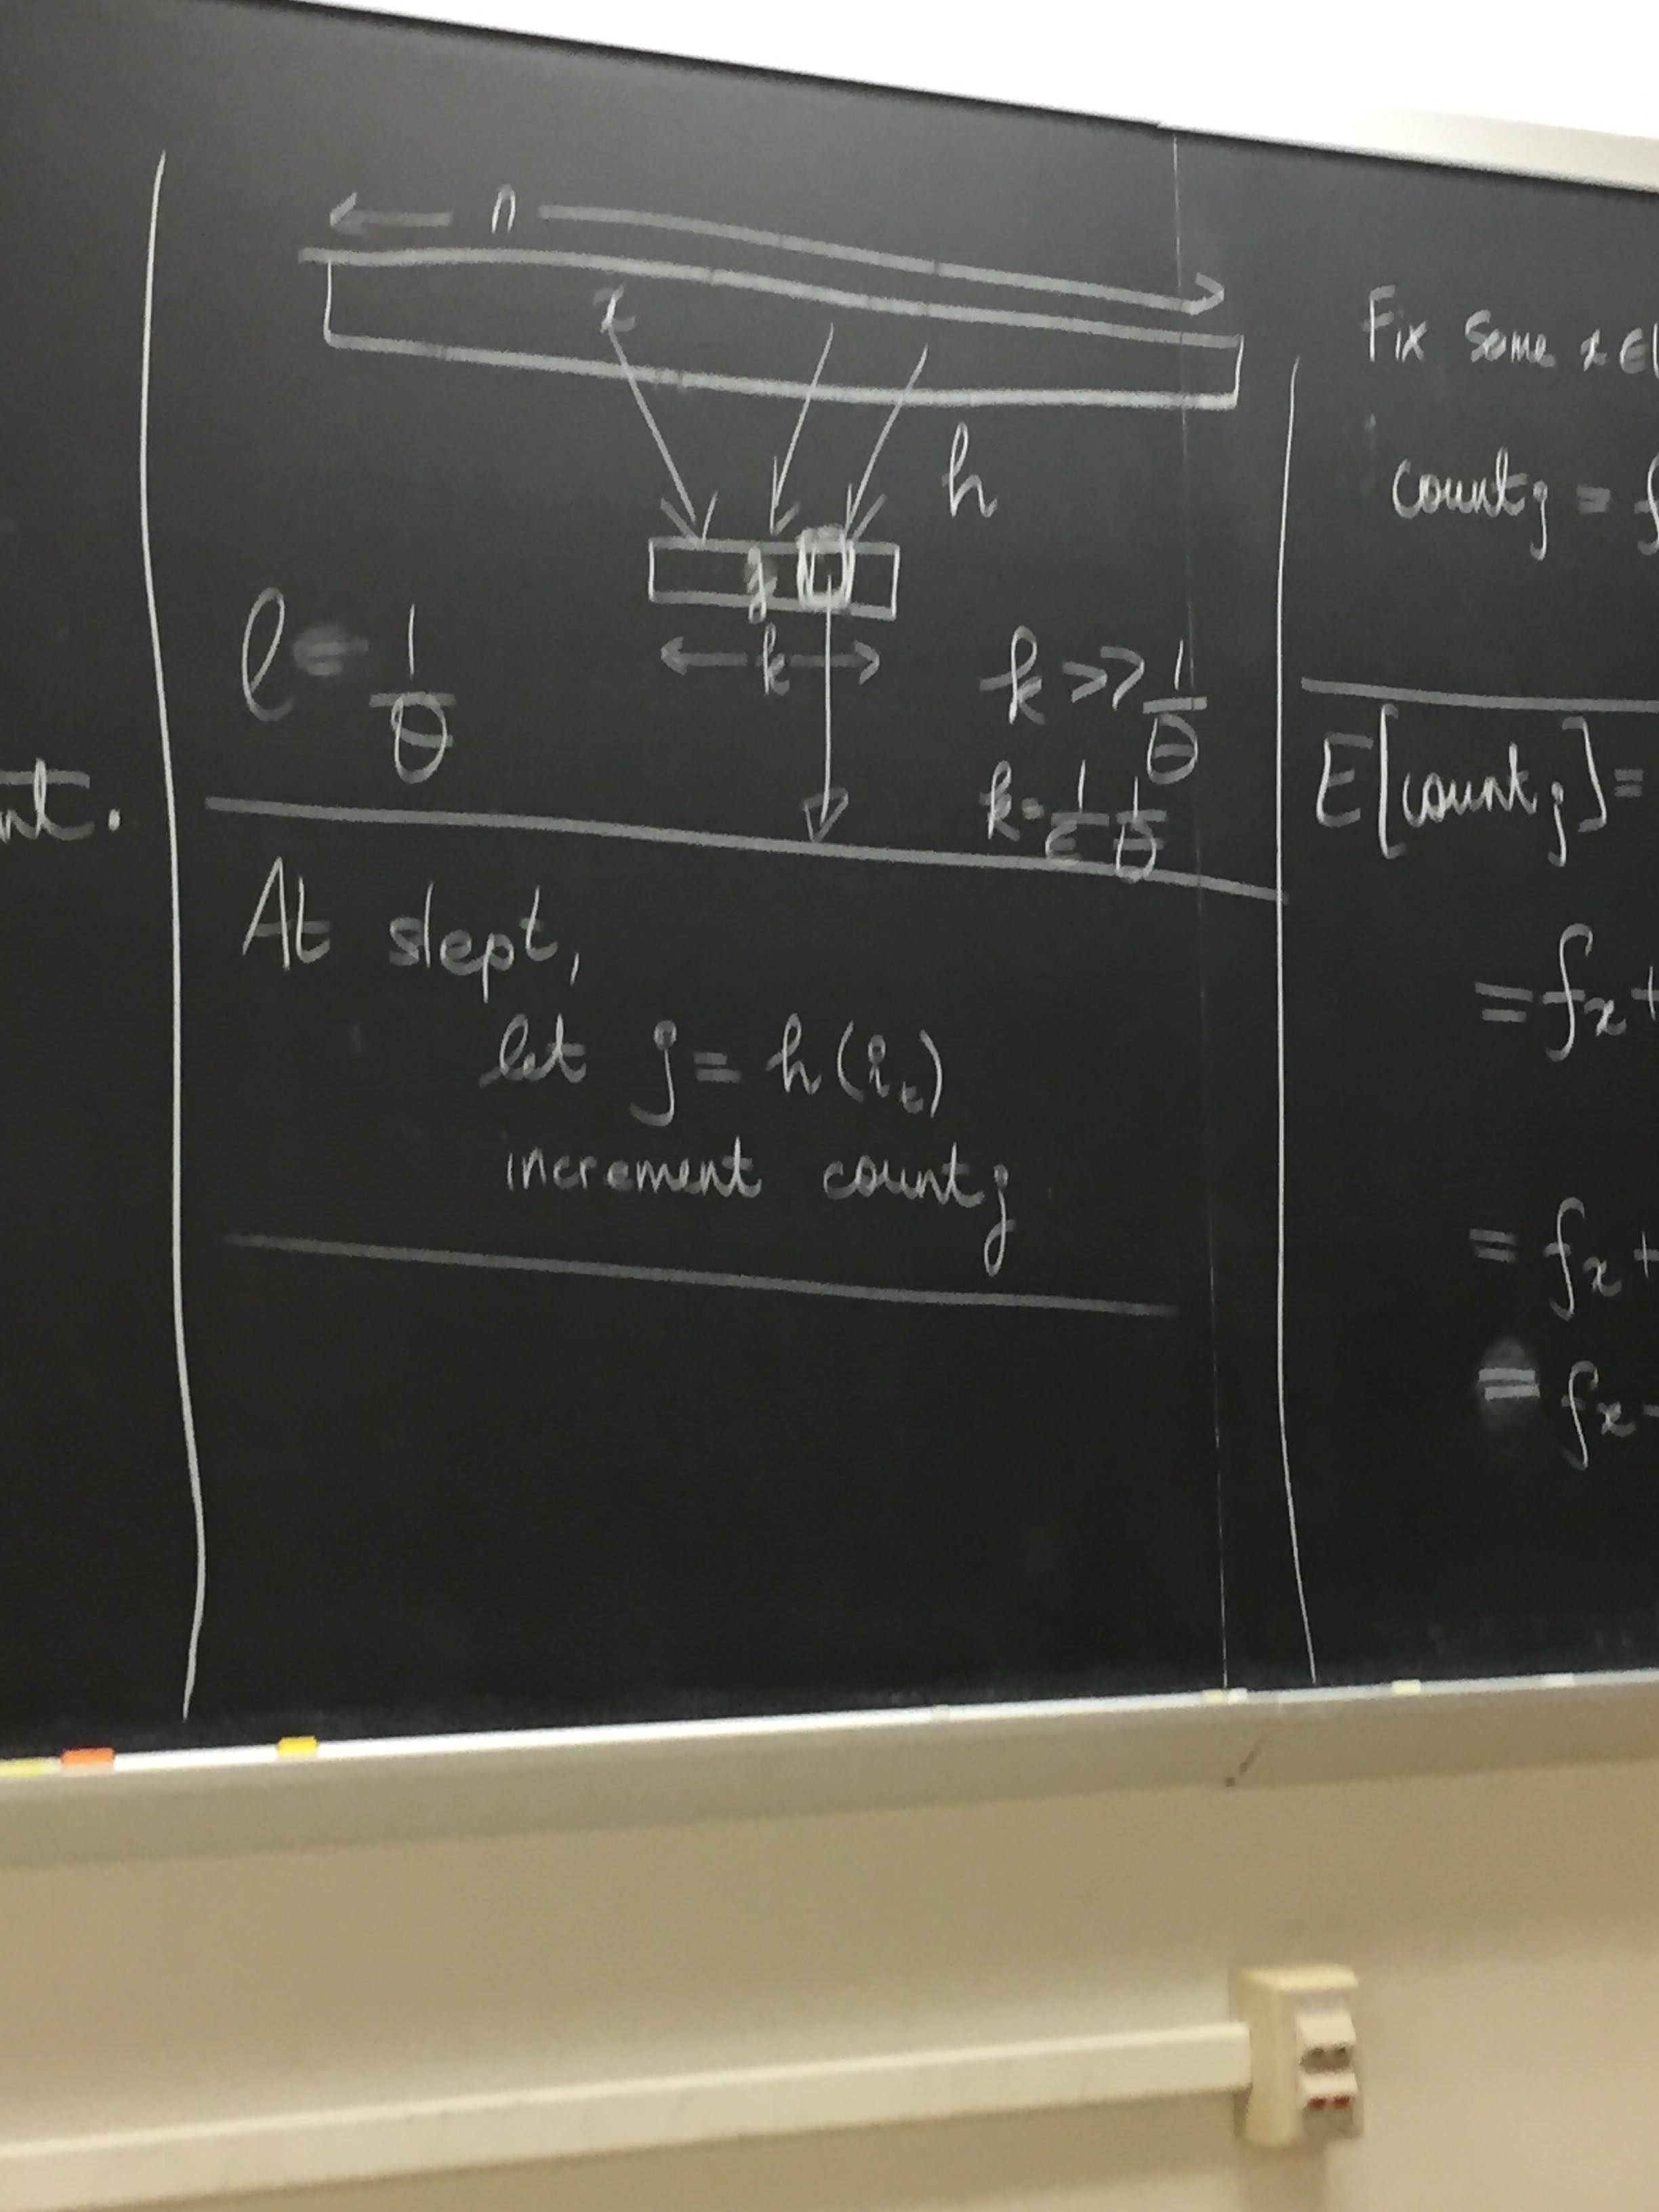 nt.
n
x
h
j
k
l = 1/θ
k >> 1/θ
k = 1/ε 1/θ
At step t,
let j = h(i_t)
increment count_j
Fix some x ∈
count_j = f
E[count_j] =
= f_x +
= f_x +
= f_x